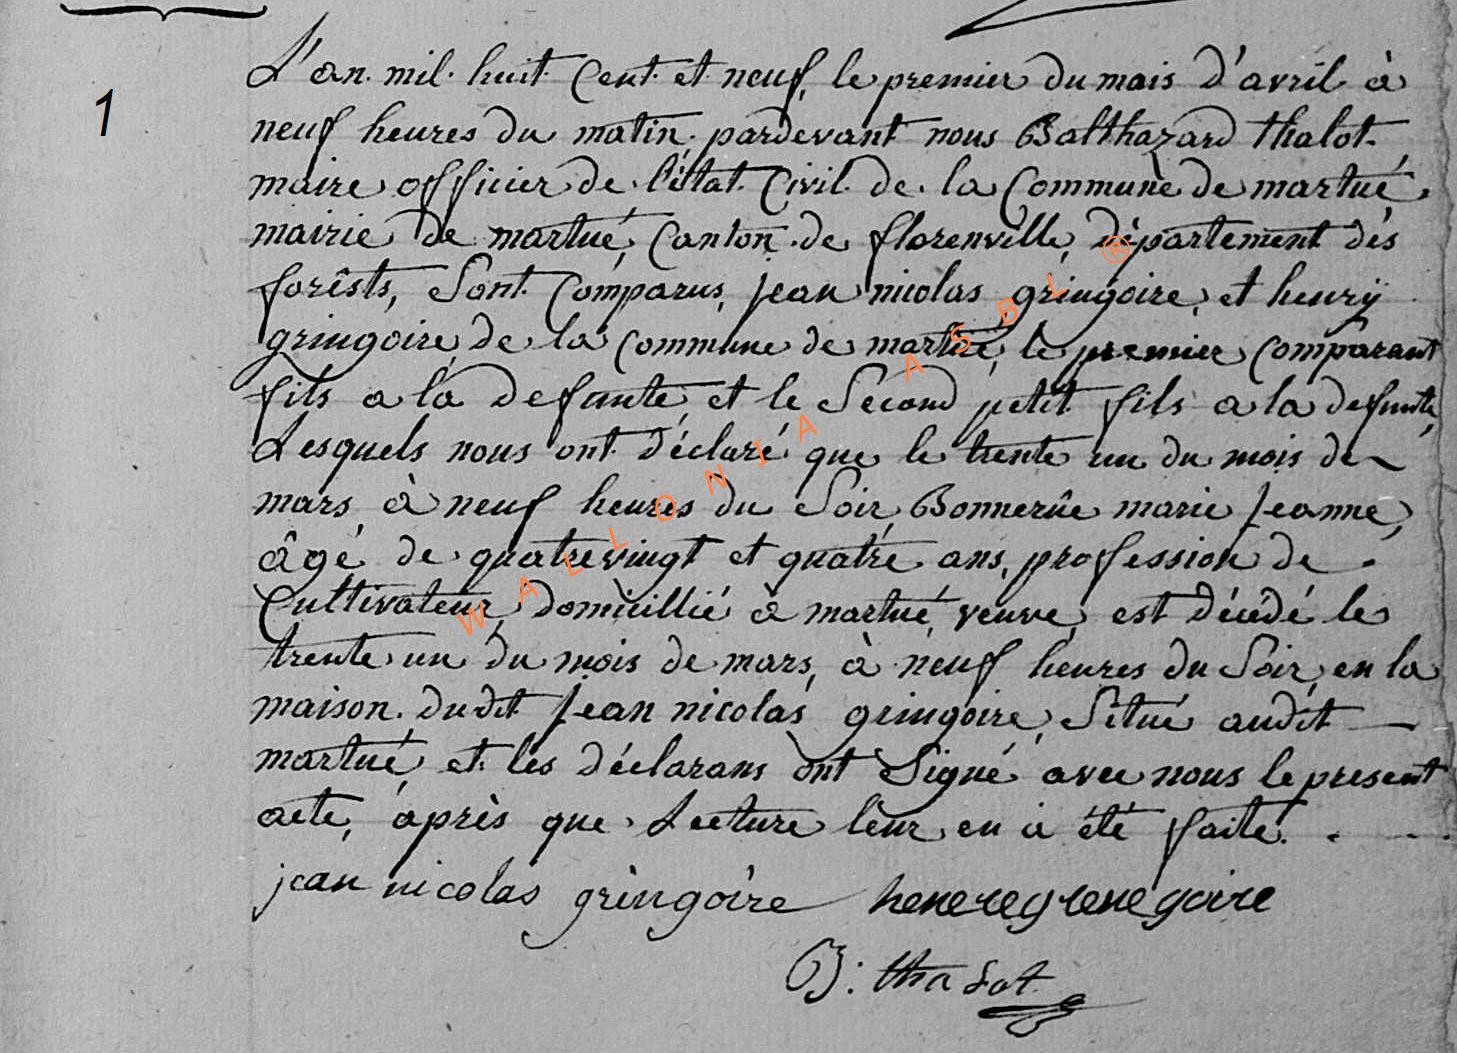 1
L'an mil huit Cent et neuf, le premier du mais d'avril à
neuf heures du matin, pardevant nous Balthazard thalot
maire officier de l'état Civil de la Commune de martué,
mairie de martué, Canton de florenville, département dés
forêsts, Sont Comparus, jean nicolas gringoire, et henrÿ
gringoire de la Commune de martué, le premier Comparant
fils a la defunte, et le Second petit fils a la defunte,
Lesquels nous ont déclaré que le trente un du mois de
mars, à neuf heures du Soir, Bonnerûe marie jeanne,
âgé de quatrevingt et quatre ans, profession de
Cultivateur, domicillié à martué, veuve, est décédé le
trente un du mois de mars, à neuf heures du Soir, en la
maison dudit jean nicolas gringoire, Situé audit
martué, et les déclarans ont Signé avec nous le present
acte, après que Lecture leur en a été faite.
jean nicolas gringoire
B: thalot
WALLONIA ASBL ®